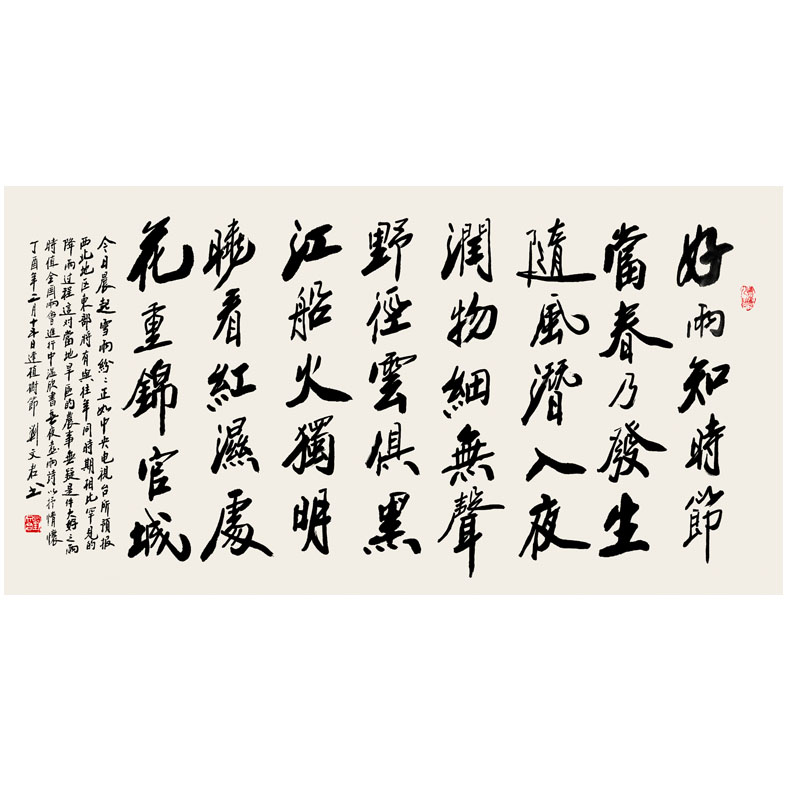 好雨知時節
當春乃發生
隨風潛入夜
潤物細無聲
野徑雲俱黑
江船火獨明
曉看紅濕處
花重錦官城
今日晨起雪雨紛紛正如中央电視台所預报
西北地区東部將有與往年同時期相比罕見的
降雨过程這对當地旱區的農事無疑是件大好之雨
時值全国兩會進行中溫欣書春夜喜雨詩以抒情懷
丁酉年二月十五日逢植樹節 劉文